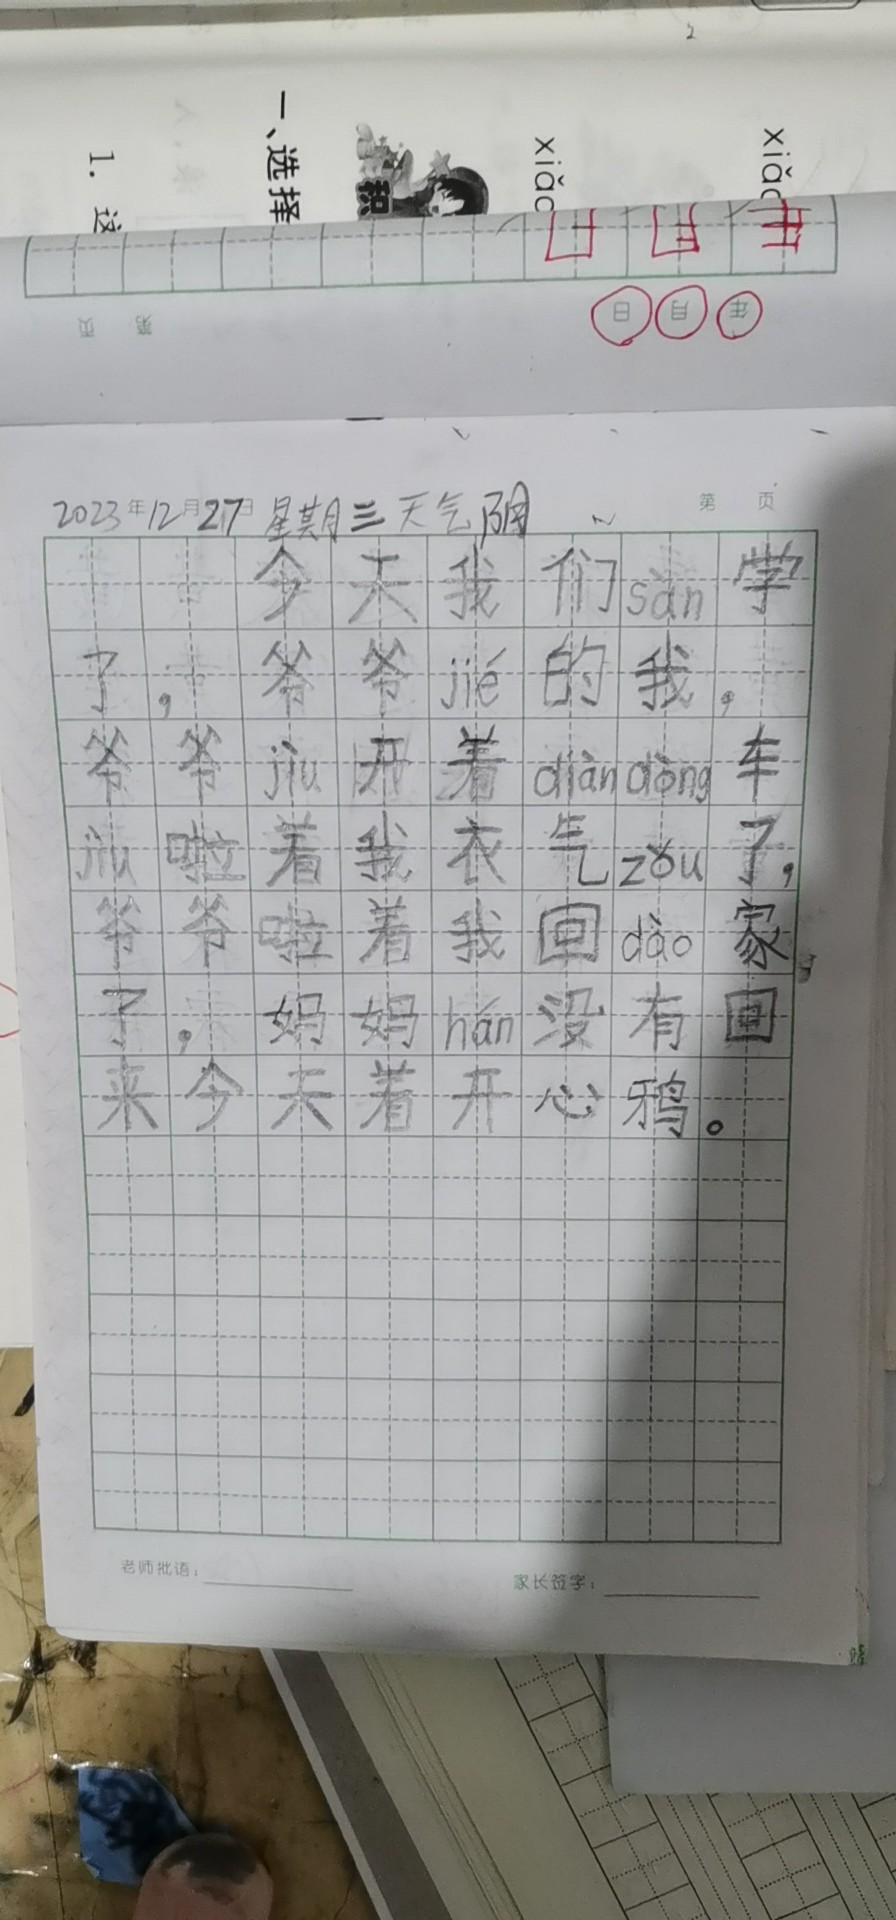 一、选择
1. 这
xiǎo
xiǎo
日
月
年
第 页
日 月 年
2023年12月27日 星期三 天气阴
第 页
今天我们sàn学
了，爷爷jié的我，
爷爷jìu开着diàndòng车
jìu啦着我衣气zǒu了，
爷爷啦着我回dào家
了，妈妈hán没有回
来今天着开心鸦。
老师批语：
家长签字：